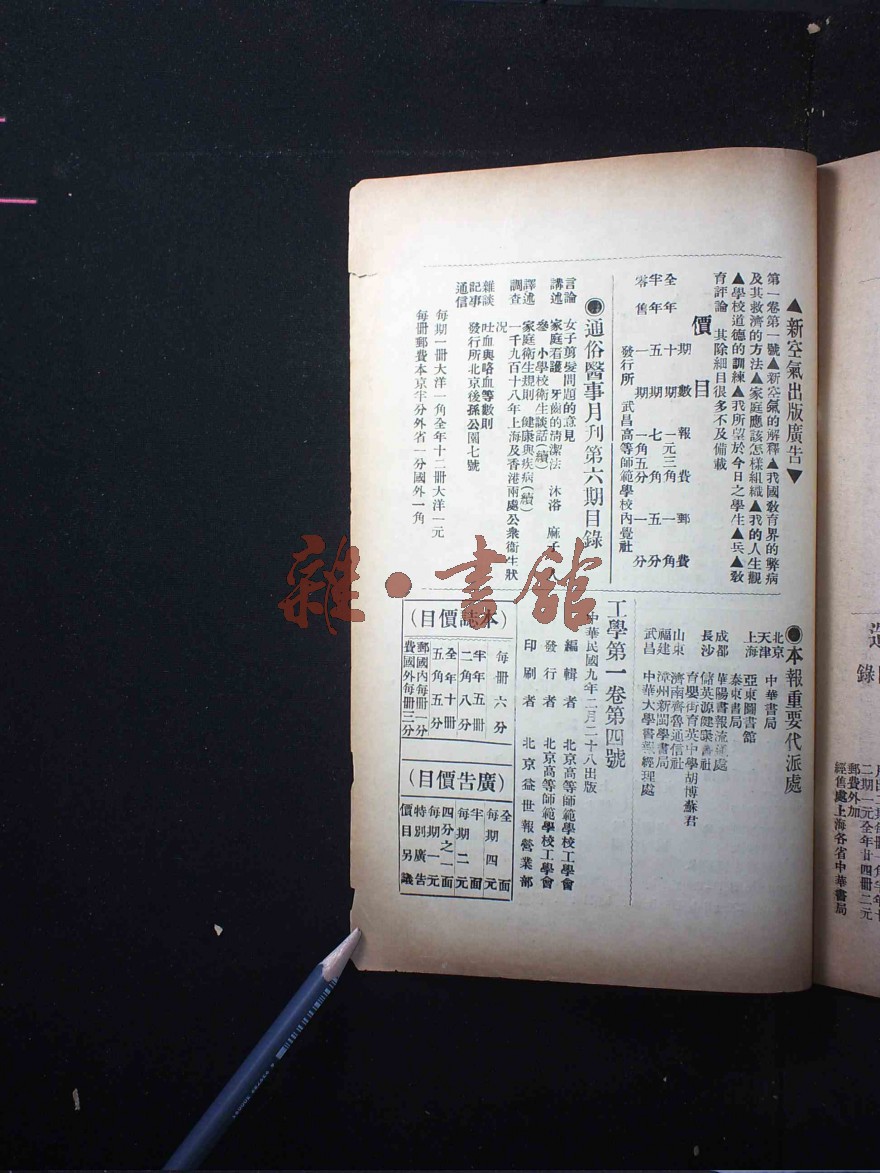 ▲新空氣出版廣告▼
第一卷第一號▲新空氣的解釋▲我國教育界的弊病
及其救濟的方法▲家庭應該怎樣組織▲我的人生觀
▲學校道德的訓練▲我所望於今日之學生▲兵▲教
育評論 其除細目很多不及備載
價目
期數 報費 郵費
全年 十期 一元三角 一角
半年 五期 七角 五分
零售 一期 一角五分 一分
發行所 武昌高等師範學校內覺社
●通俗醫事月刊第六期目錄
言論 女子剪髮問題的意見
講述 家庭看護 牙齒的清潔法 沐浴 麻
小學校衛生談話(續)
譯述 家庭衛生規則 健康與疾病(續)
調查 一千九百十八年上海及香港兩處公衆衛生狀
況
雜談 吐血與咯血等數則
記事
通信 發行所北京後孫公園七號
每期一冊大洋一角全年十二冊大洋一元
每冊郵費本京半分外省一分國外一角
●本報重要代派處
北京
天津 中華書局
上海 亞東圖書館
泰東書局
成都 華陽書報流通處
長沙 儲英源健康書社
育嬰街育英中學胡博蘇君
山東 濟南齊魯通信社
福建 漳州新閩學書局
武昌 中華大學書報經理處
工學第一卷第四號
中華民國九年二月二十八出版
編輯者 北京高等師範學校工學會
發行者 北京高等師範學校工學會
印刷者 北京益世報營業部
(本誌價目)
每冊六分
半年五冊
二角八分
全年十冊
五角五分
郵國內每冊一分
費國外每冊三分
(廣告價目)
全面
每期四元
半面
每期二元
四分之一面
每期一元
特別廣告
價目另議
二期二元全年廿四冊二元
郵費外加
經售處上海各省中華書局
雜·書館